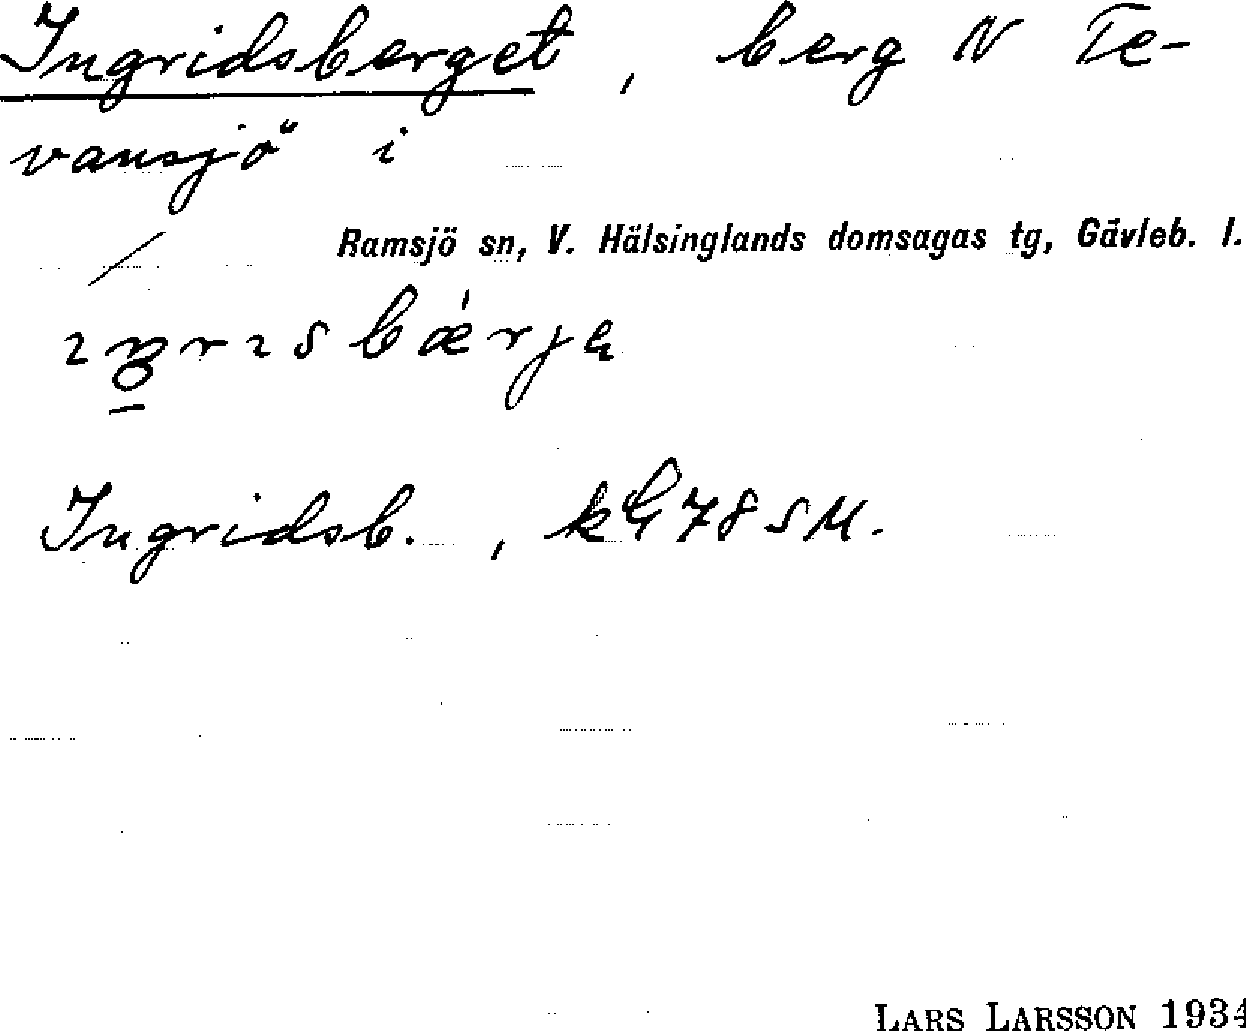 Ingridsberget, berg N Te-
vansjö i
Ramsjö sn, V. Hälsinglands domsagas tg, Gävleb. l.
Ingridsb., kbl 78 SM.
LARS LARSSON 1934